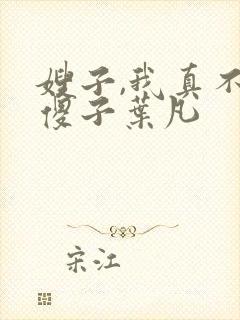 嫂子,我真不
傻子葉凡
宋江